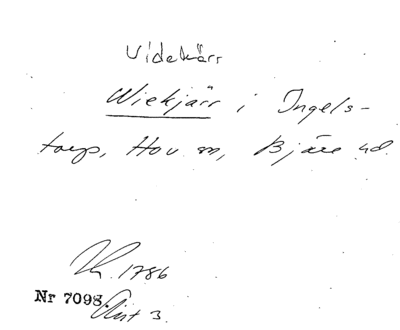 Videkärr
Wiekjärr i Ingels-
torp, Hov sn, Bjäre hd.
1786
Nr 7098. Akt 3.